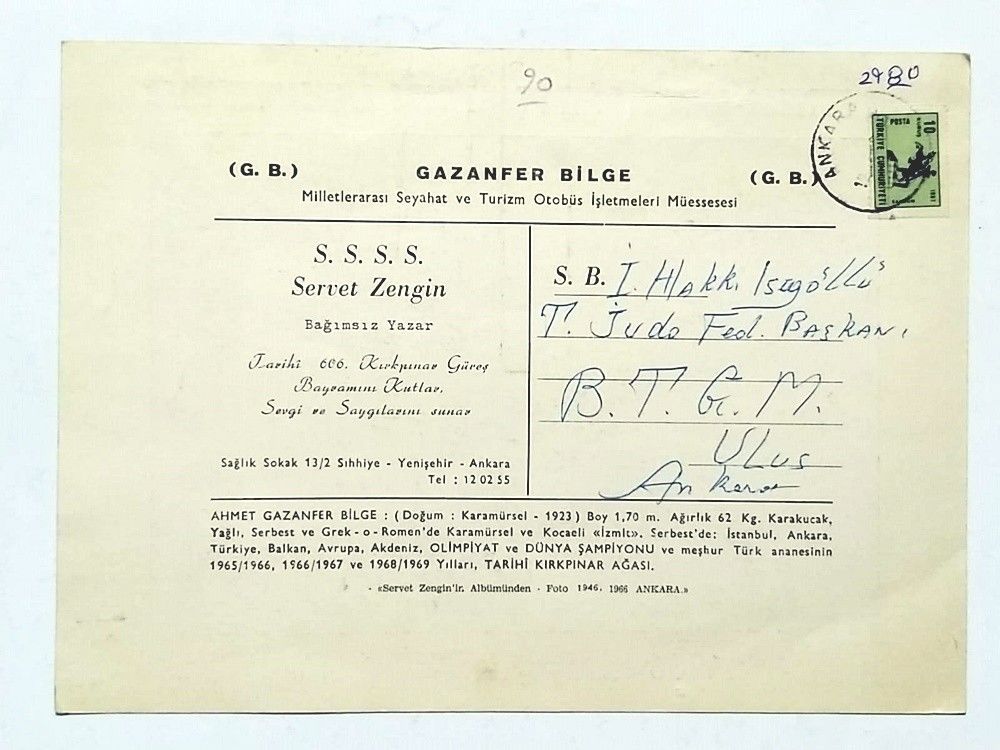 90
2980
ANKARA
10
POSTA
TÜRKİYE CUMHURİYETİ
(G. B.) GAZANFER BİLGE (G. B.)
Milletlerarası Seyahat ve Turizm Otobüs İşletmeleri Müessesesi
S. S. S. S.
Servet Zengin
Bağımsız Yazar
Tarihî 606. Kırkpınar Güreş
Bayramını Kutlar,
Sevgi ve Saygılarını sunar
Sağlık Sokak 13/2 Sıhhiye - Yenişehir - Ankara
Tel : 12 02 55
S. B. İ. Hakkı İsegöllü
T. Judo Fed. BAŞKANı
B. T. G. M.
ULus
Ankara
AHMET GAZANFER BİLGE : (Doğum : Karamürsel - 1923) Boy 1,70 m. Ağırlık 62 Kg. Karakucak,
Yağlı, Serbest ve Grek-o-Romen'de Karamürsel ve Kocaeli «İzmit». Serbest'de: İstanbul, Ankara,
Türkiye, Balkan, Avrupa, Akdeniz, OLİMPİYAT ve DÜNYA ŞAMPİYONU ve meşhur Türk ananesinin
1965/1966, 1966/1967 ve 1968/1969 Yılları, TARİHÎ KIRKPINAR AĞASI.
- «Servet Zengin'in Albümünden - Foto 1946, 1966 ANKARA.»